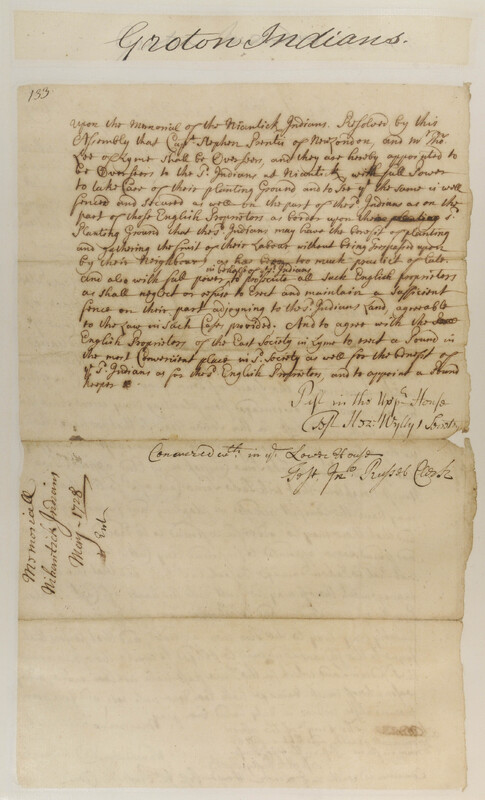 Groton Indians.
133
Upon the Memorial of the Niantick Indians. Resolved by this
Assembly that Capt. Stephen Prentis of New London, and Mr. Tho:
Lee of Lyme shall be Overseers, and they are hereby appointed to
be Overseers to the sd. Indians at Niantick, with full Power
to take Care of their planting Ground and to See yt. the same is well
fenced and Secured as well on the part of the sd. Indians as on the
part of those English Proprietors as border upon the sd.
Planting Ground that the sd. Indians may have the benefit of planting
and gathering the fruit of their Labour without being
by their Neighbours, as has been too much practict of late.
in behalf of sd. Indians
And also with full power to prosecute all such English proprietors
as shall neglect or refuse to Erect and maintain a Sufficient
fence on their part adjoyning to the sd. Indians Land, agreeable
to the Law in Such Cases provided. And to agree with the
English Proprietors of the East Society in Lyme to erect a Pound in
the most Convenient place in sd. Society as well for the benefit of
ye sd. Indians as for the sd. English Proprietors, and to appoint a Pound
keeper
Past in the Uppr. House
Test Hez: Wyllys Secretr
Concurred wth. in ye. Lower House
Test Jno. Russel Clerk
Memoriall
Nihantick Indians
May - 1728
Ent